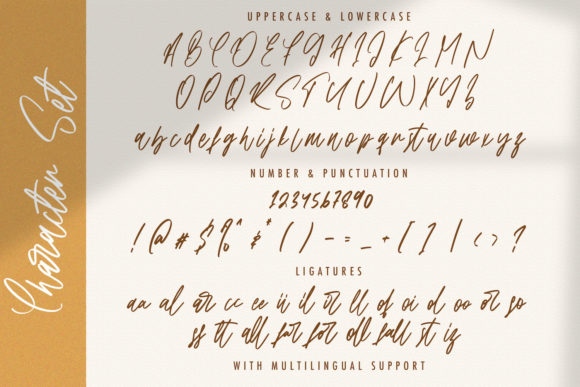 Character Set
UPPERCASE & LOWERCASE
A B C D E F G H I J K L M N
O P Q R S T U V W X Y Z
a b c d e f g h i j k l m n o p q r s t u v w x y z
NUMBER & PUNCTUATION
1 2 3 4 5 6 7 8 9 0
! @ # $ % ^ & * ( ) - = _ + [ ] | < > ?
LIGATURES
aa al ar cc ee ii il ir ll of oi ol oo or so
ss tt all far for oll fall st iz
WITH MULTILINGUAL SUPPORT